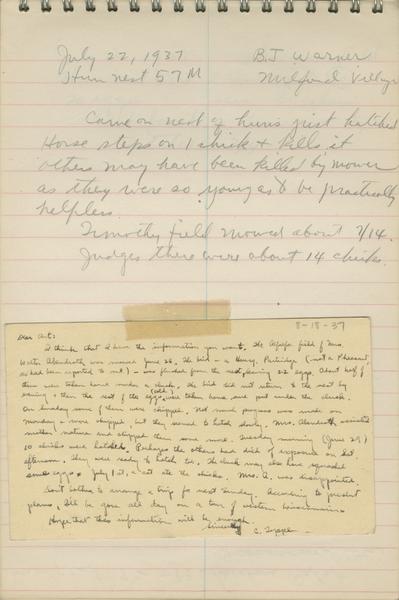 July 22, 1937
B.J Warner
Hun nest 57 M
Milford Village
Came on nest of huns just hatched
Horse steps on 1 chick + kills it
others may have been killed by mower
as they were so young as to be practically
helpless.
Timothy field mowed about 7/14.
Judges there were about 14 chicks.
8-18-37
Dear Art:
I think that I have the information you want. The alfalfa field of Mrs.
Walter Abendroth was mowed June 26. The bird - a Hung. Partridge (not a Pheasant
as had been reported to me) - was flushed from the nest, leaving 22 eggs. About half of
them were taken home under a cluck. The bird did not return to the nest by
evening & then the rest of the eggs (cold) were taken home and put under the cluck.
On Sunday some of them were chipped. Not much progress was made on
Monday & more chipped, but they seemed to hatch slowly. Mrs. Abendroth assisted
mother nature and chipped them some more. Tuesday morning (June 29)
10 chicks were hatched. Perhaps the others had died of exposure on Sat.
afternoon. They were ready to hatch too. The cluck may also have squashed
some eggs. July 1st, a cat ate the chicks. Mrs. A. was disappointed.
Don't bother to arrange a trip for next Sunday. According to present
plans, I'll be gone all day on a tour of western Wisconsin.
Hope that this information will be enough.
Sincerely
C.